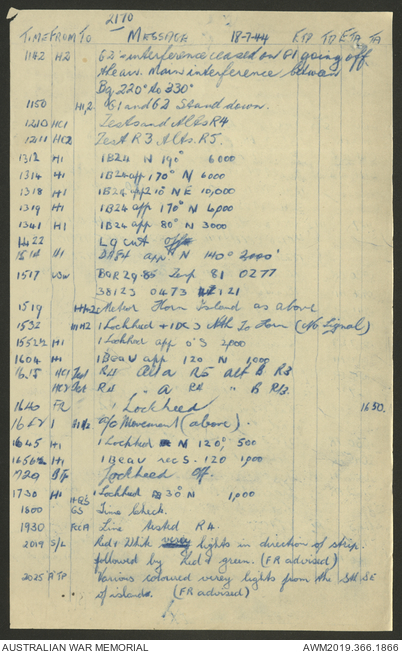 2170
TIME FROM TO MESSAGE 18-7-44 ETD TD ETA TA
1142 H2 62's interference ceased on 61 going off
the air. Main interference between
Bg. 220° to 330°
1150 H1,2 61 and 62 Stand down.
1210 HC1 Tests and Alts R4
1211 HC2 Test R3 Alts. R5.
1312 H1 1 B24 N 190° 6000
1314 H1 1 B24 app 170° N 6000
1318 H1 1 B24 app 210 NE 10,000
1319 H1 1 B24 app 170° N 4,000
1341 H1 1 B24 app 80° N 3000
1422 LQ cut off
1514 H1 app N 140° 2000'
1517 BQR 29.85 Temp 81 0277
38123 0473 121
1519 H1,2 Meteor Horn Island as above
1532 H1H2 1 Lockheed + 1 DC3 Nth To Horn (No Signal)
1552 H1 1 Lockheed app 0°S 2,000
1604 H1 1 Beau app. 120 N 1,000
1615 HC1 Test R4 Alt A R5 Alt B R3
HC2 Test R4 " A R4 " B R3.
1640 FR 1 Lockheed 1650.
1 H1H2 A/C Movement (above).
1645 H1 1 Lockheed N 120° 500
1656 H1 1 Beau rec S. 120 1,000
1729 Lockheed Off.
1730 H1 1 Lockheed 30°N 1,000
1800 GS Time Check.
1930 Line tested R4.
2019 S/L Red & White verey lights in direction of strip.
followed by Red & green. (FR advised)
2025 A TP Various coloured verey lights from the SW. SE
of islands. (FR advised)
AUSTRALIAN WAR MEMORIAL AWM2019.366.1866